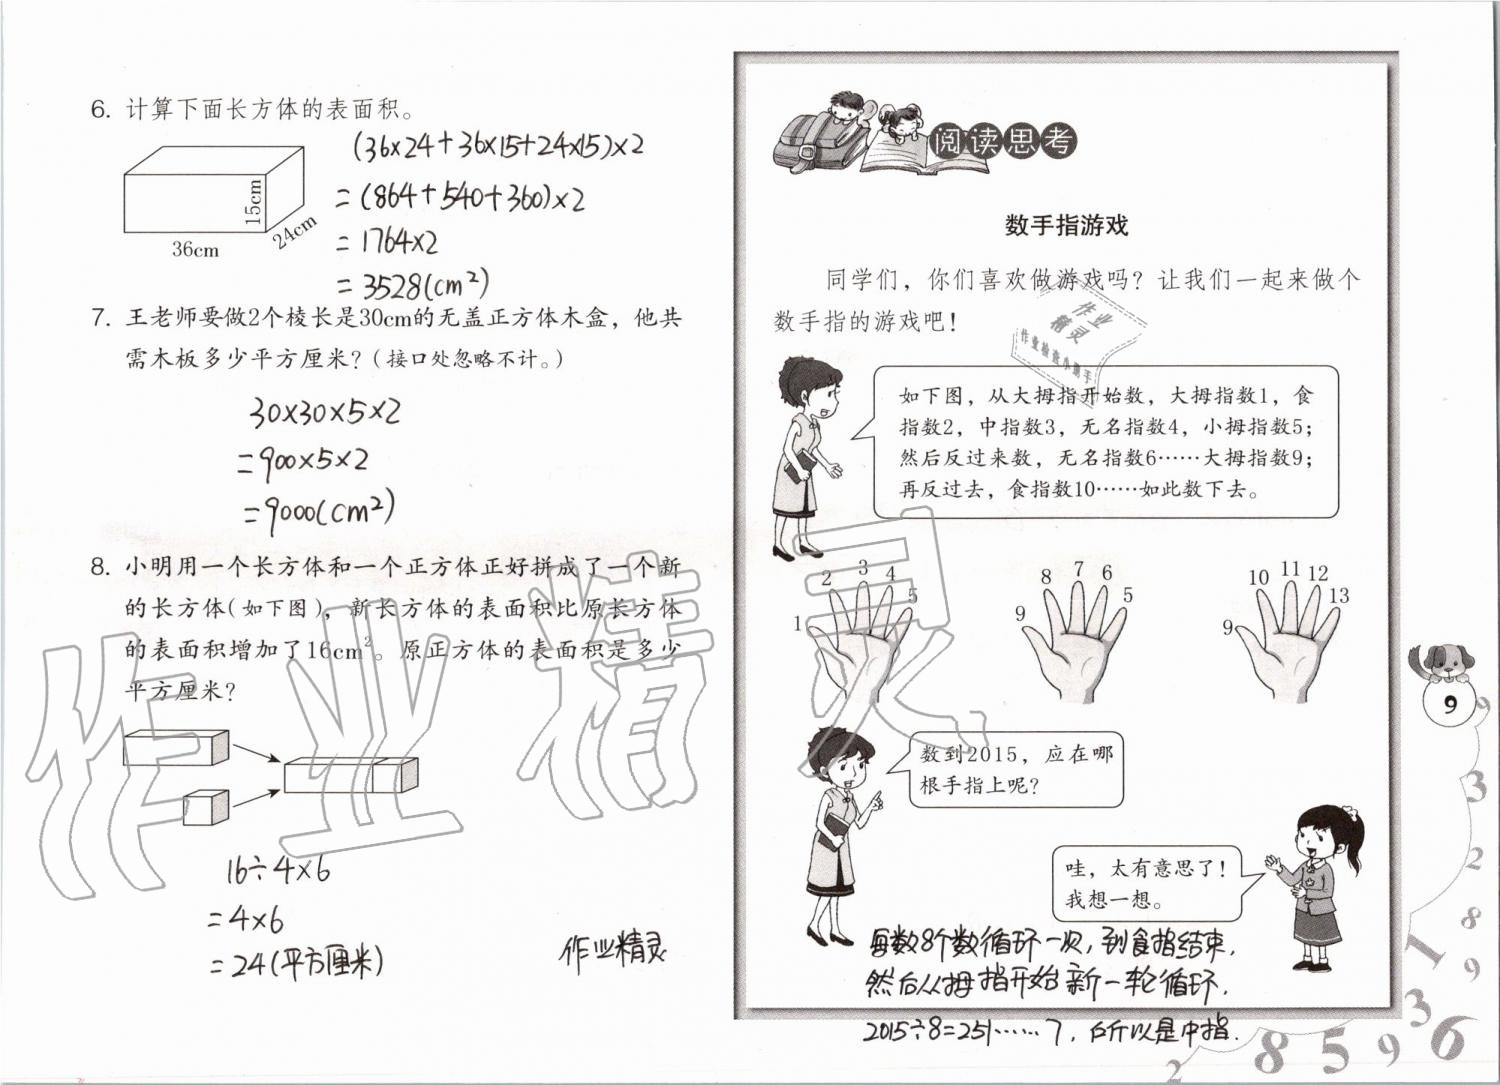 6. 计算下面长方体的表面积。
15cm
24cm
36cm
(36×24+36×15+24×15)×2
=(864+540+360)×2
=1764×2
=3528(cm²)
7. 王老师要做2个棱长是30cm的无盖正方体木盒，他共
需木板多少平方厘米？(接口处忽略不计。)
30×30×5×2
=900×5×2
=9000(cm²)
8. 小明用一个长方体和一个正方体正好拼成了一个新
的长方体(如下图)，新长方体的表面积比原长方体
的表面积增加了16cm²。原正方体的表面积是多少
平方厘米？
16÷4×6
=4×6
=24(平方厘米)
作业精灵
阅读思考
数手指游戏
同学们，你们喜欢做游戏吗？让我们一起来做个
数手指的游戏吧！
作业
精灵
作业检查小帮手
如下图，从大拇指开始数，大拇指数1，食
指数2，中指数3，无名指数4，小拇指数5；
然后反过来数，无名指数6……大拇指数9；
再反过去，食指数10……如此数下去。
1 2 3 4 5
9 8 7 6 5
9 10 11 12 13
数到2015，应在哪
根手指上呢？
哇，太有意思了！
我想一想。
每数8个数循环一次，到食指结束，
然后从拇指开始新一轮循环.
2015÷8=251……7，所以是中指.
作业精灵
9
9
3
2
8
1
9
3
6
9
5
8
2